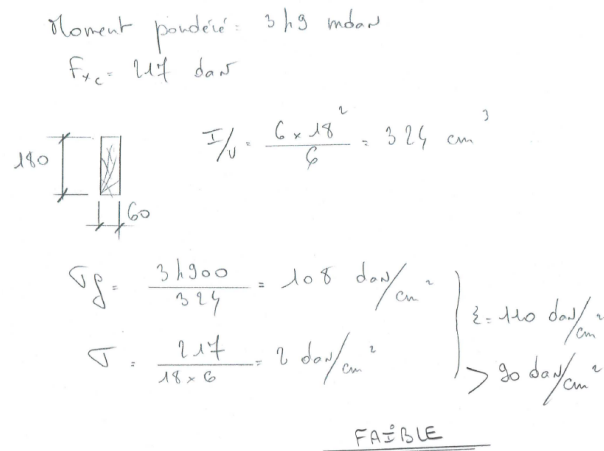 Moment pondéré = 349 mdaN
Fxc = 217 daN
I/v = 6 x 18² / 6 = 324 cm³
180
60
σf = 34900 / 324 = 108 daN/cm²
σ = 217 / 18 x 6 = 2 daN/cm²
Σ = 110 daN/cm²
> 90 daN/cm²
FAIBLE